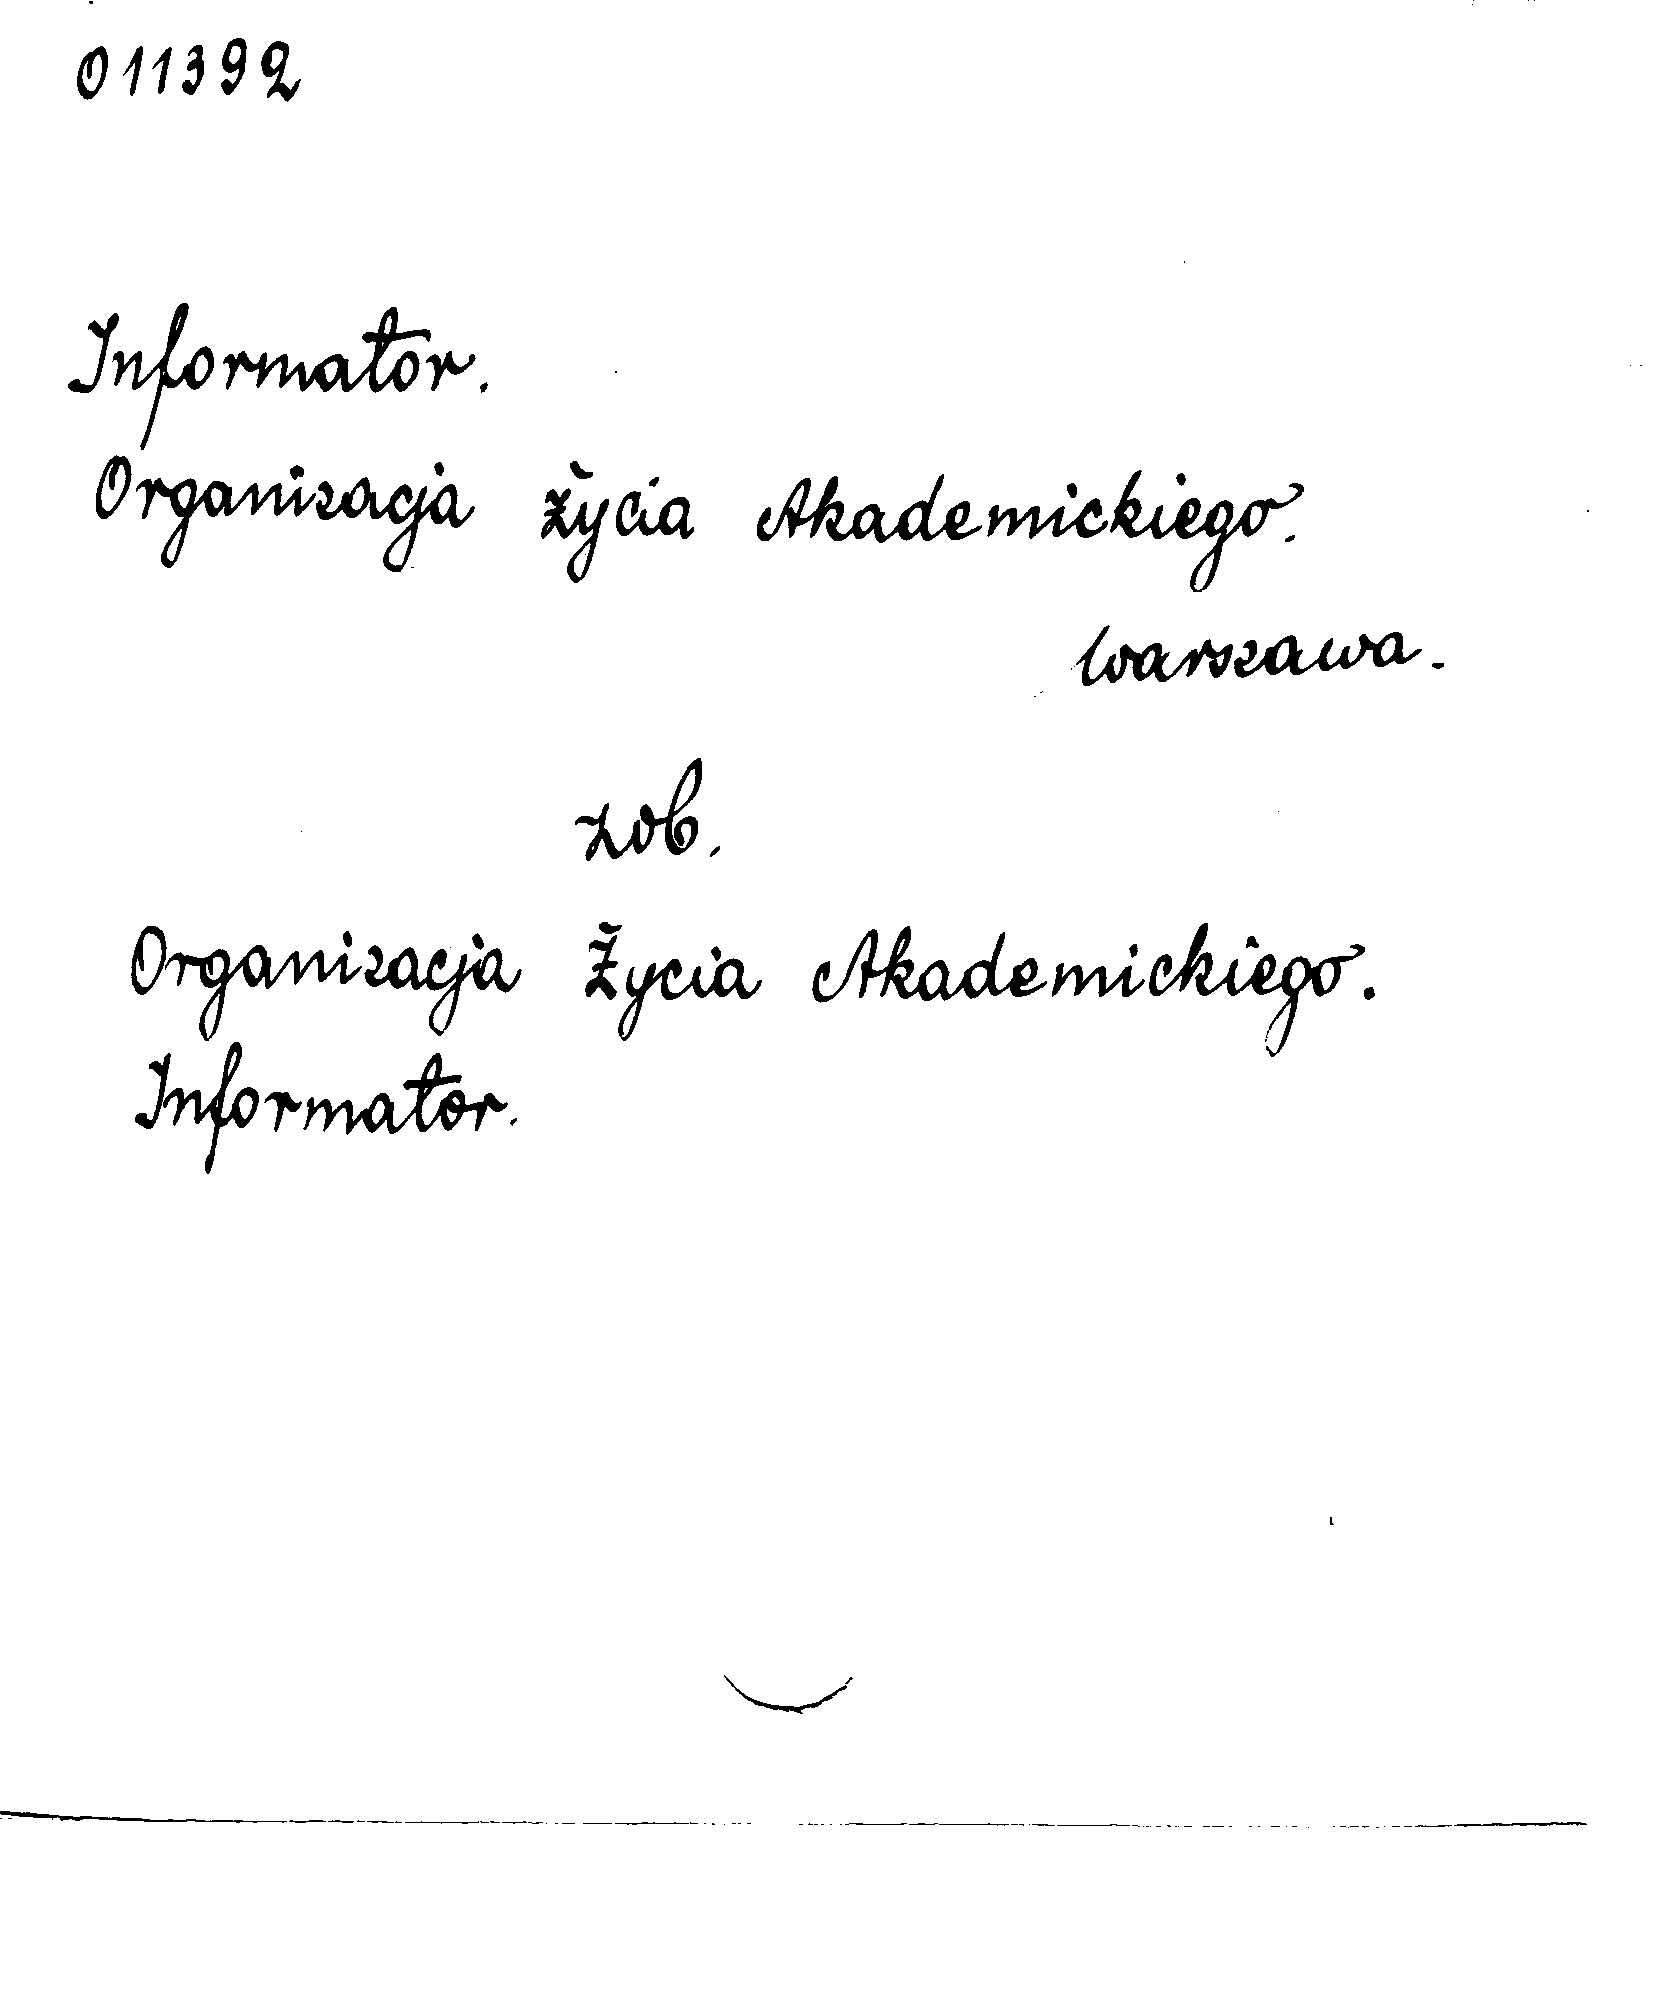 011392
Informator.
Organizacja Życia Akademickiego.
Warszawa.
zob.
Organizacja Życia Akademickiego.
Informator.